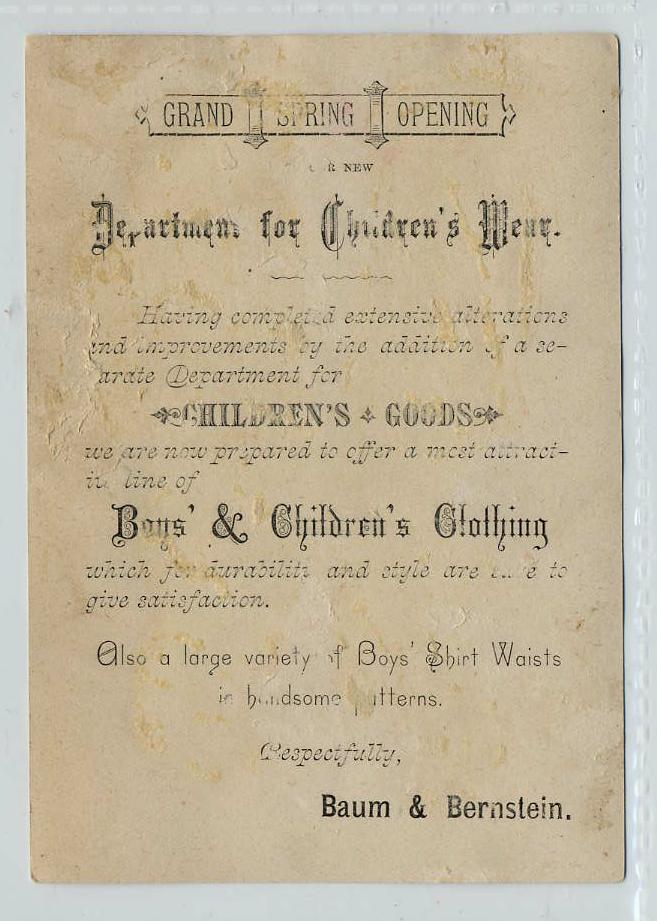 GRAND SPRING OPENING
NEW
Department for Children's Wear.
Having completed extensive alterations
and improvements by the addition of a se-
arate Department for
CHILDREN'S GOODS
we are now prepared to offer a most attract-
line of
Boys' & Children's Clothing
which for durability and style are to
give satisfaction.
Also a large variety of Boys' Shirt Waists
in handsome patterns.
Respectfully,
Baum & Bernstein.